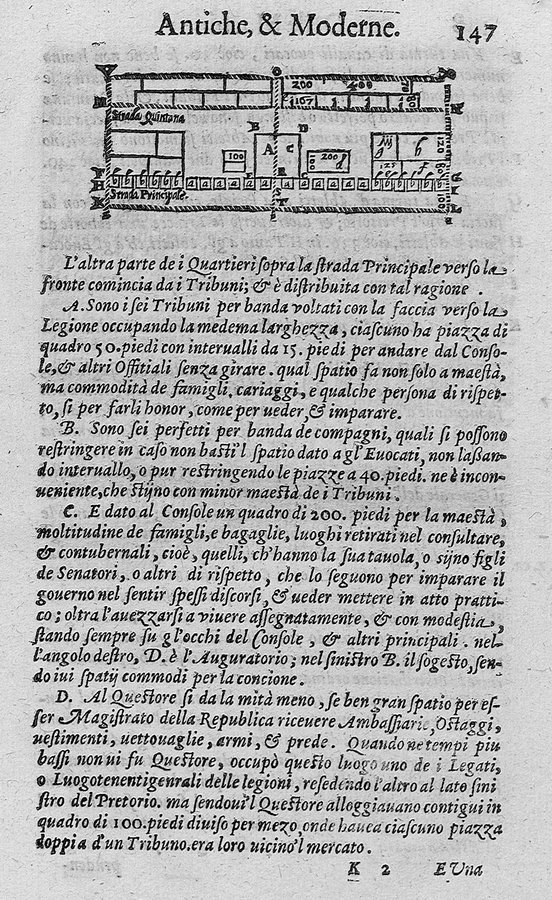 Antiche, & Moderne. 147
200 400
1107
Strada Quintana
B D
A C
100 200
Strada Principale.
L'altra parte de i Quartieri sopra la strada Principale verso la
fronte comincia da i Tribuni; & è distribuita con tal ragione .
A. Sono i sei Tribuni per banda voltati con la faccia verso la
Legione occupando la medema larghezza, ciascuno ha piazza di
quadro 50. piedi con interualli da 15. piedi per andare dal Conso-
le, & altri Offitiali senza girare. qual spatio fa non solo a maestà,
ma commodità de famigli, cariaggi, e qualche persona di rispet-
to, si per farli honor, come per ueder, & imparare.
B. Sono sei perfetti per banda de compagni, quali si possono
restringere in caso non basti'l spatio dato a gl'Euocati, non lassan-
do interuallo, o pur restringendo le piazze a 40. piedi. ne è incon-
ueniente, che stijno con minor maestà de i Tribuni.
C. E dato al Console un quadro di 200. piedi per la maestà,
moltitudine de famigli, e bagaglie, luoghi retirati nel consultare,
& contubernali, cioè, quelli, ch'hanno la sua tauola, o sijno figli
de Senatori, o altri di rispetto, che lo seguono per imparare il
gouerno nel sentir spessi discorsi, & ueder mettere in atto pratti-
co; oltra l'auezzarsi a viuere assegnatamente, & con modestia,
stando sempre su gl'occhi del Console, & altri principali. nel-
l'angolo destro, D. è l'Auguratorio; nel sinistro B. il sogesto, sen-
do iui spatij commodi per la concione.
D. Al Questore si da la mità meno, se ben gran spatio per es-
ser Magistrato della Republica riceuere Ambassiarie, Ostaggi,
uestimenti, uettouaglie, armi, & prede. Quando ne tempi piu
bassi non ui fu Questore, occupò questo luogo uno de i Legati,
o Luogotenentigenrali delle legioni, resedendo l'altro al lato sini
stro del Pretorio. ma sendoui'l Questore alloggiauano contigui in
quadro di 100. piedi diuiso per mezo, onde hauea ciascuno piazza
doppia d'un Tribuno. era loro uicino'l mercato.
K 2 E Una